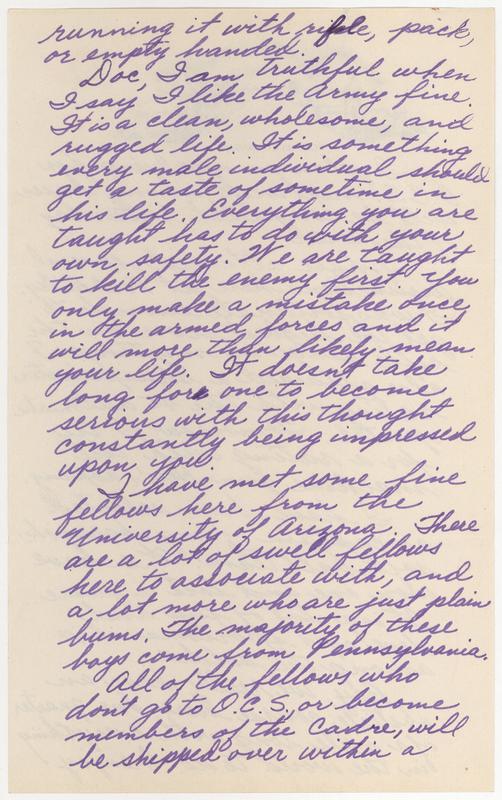 running it with rifle, pack,
or empty handed.
Doc, I am truthful when
I say I like the Army fine.
It is a clean, wholesome, and
rugged life. It is something
every male individual should
get a taste of sometime in
his life. Everything you are
taught has to do with your
own safety. We are taught
to kill the enemy first. You
only make a mistake once
in the armed forces and it
will more than likely mean
your life. It doesn't take
long for one to become
serious with this thought
constantly being impressed
upon you.
I have met some fine
fellows here from the
University of Arizona. There
are a lot of swell fellows
here to associate with, and
a lot more who are just plain
bums. The majority of these
boys come from Pennsylvania.
All of the fellows who
don't go to O.C.S., or become
members of the Cadre, will
be shipped over within a